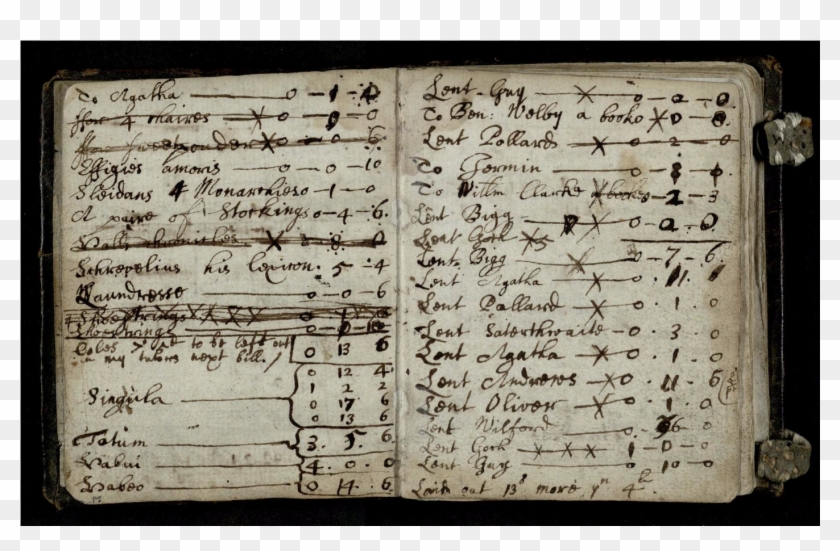 To Agatha — 0 — 1 - 4
ffor 4 chaires — X 0 — 9 — 0
0 — 0 6
Effigies amoris — 0 — 0 — 10
Sleidans 4 Monarchies 0 — 1 — 0
A paire of Stockings 0 — 4 — 6.
Halls chronicles — X 0 8 0
Schrevelius his lexicon. 5 · 4
Laundresse — 0 — 0 — 6
Shoestrings X X X X
Shoestrings 0
to be left out 0 13 6
in my tutors next bill.
0 12 4
1 2 2
Singula — 0 17 6
0 13 6
Totum — 3. 5 6
Habui — 4. 0. 0
Habeo — 0 14. 6
Lent Guy — X — 0 — 2 — 0.
To Ben: Welby a booke X 0 — 8.
Lent Pollard — X — 0 2 — 0
To Jermin — 0 — 8
To Willm Clarke 2 — 3
Lent Bigg — X — 0 — 2. 0
Lent Cook X
Lent Bigg — X — 0 — 7 — 6.
Lent Agatha — X — 0 · 11. 1
Lent Pollard — X — 0 . 1 . 0
Lent Saterthwaite — 0 . 3 . 0
Lent Agatha — X 0 . 1 . 0
Lent Andrewes — X 0 . 11 . 6
Lent Oliver — X — 0 . 1 . 0
Lent Wilford — 0 . 6 — 0
Lent Cook — X X X 1 — 0 — 0
Lent Guy — 0 — 10 — 0
Laid out 13s more yn 4l.